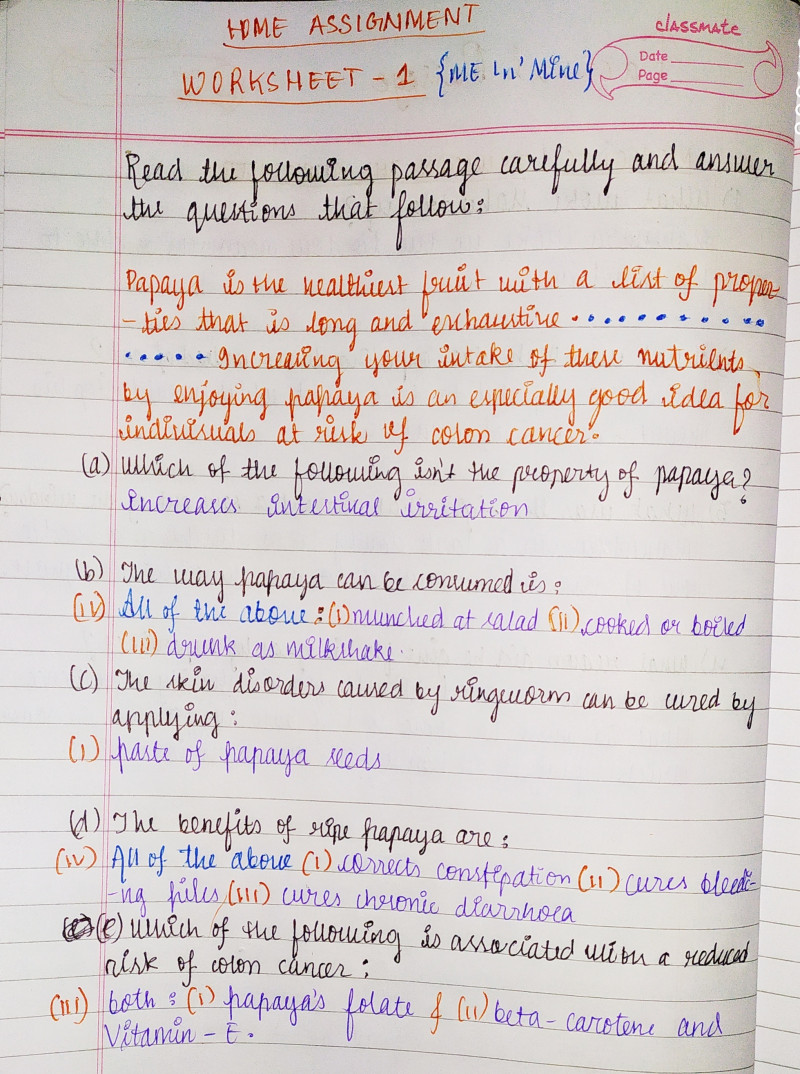 HOME ASSIGNMENT
classmate
Date
Page
WORKSHEET - 1 {ME 'n' Mine}
Read the following passage carefully and answer
the questions that follow:
Papaya is the healthiest fruit with a list of proper-
-ties that is long and exhaustive ...........
..... Increasing your intake of these nutrients
by enjoying papaya is an especially good idea for
indivisuals at risk of colon cancer.
(a) Which of the following isn't the property of papaya?
increases intestinal irritation
(b) The way papaya can be consumed is:
(iv) All of the above : (i) munched at salad (ii) cooked or boiled
(iii) drunk as milkshake.
(c) The skin disorders caused by ringworm can be cured by
applying:
(i) paste of papaya seeds
(d) The benefits of ripe papaya are:
(iv) All of the above (i) corrects constipation (ii) cures bleedi-
-ng piles (iii) cures chronic diarrhoea
(e) Which of the following is associated with a reduced
risk of colon cancer:
(iii) both : (i) papaya's folate & (ii) beta-carotene and
Vitamin - E.